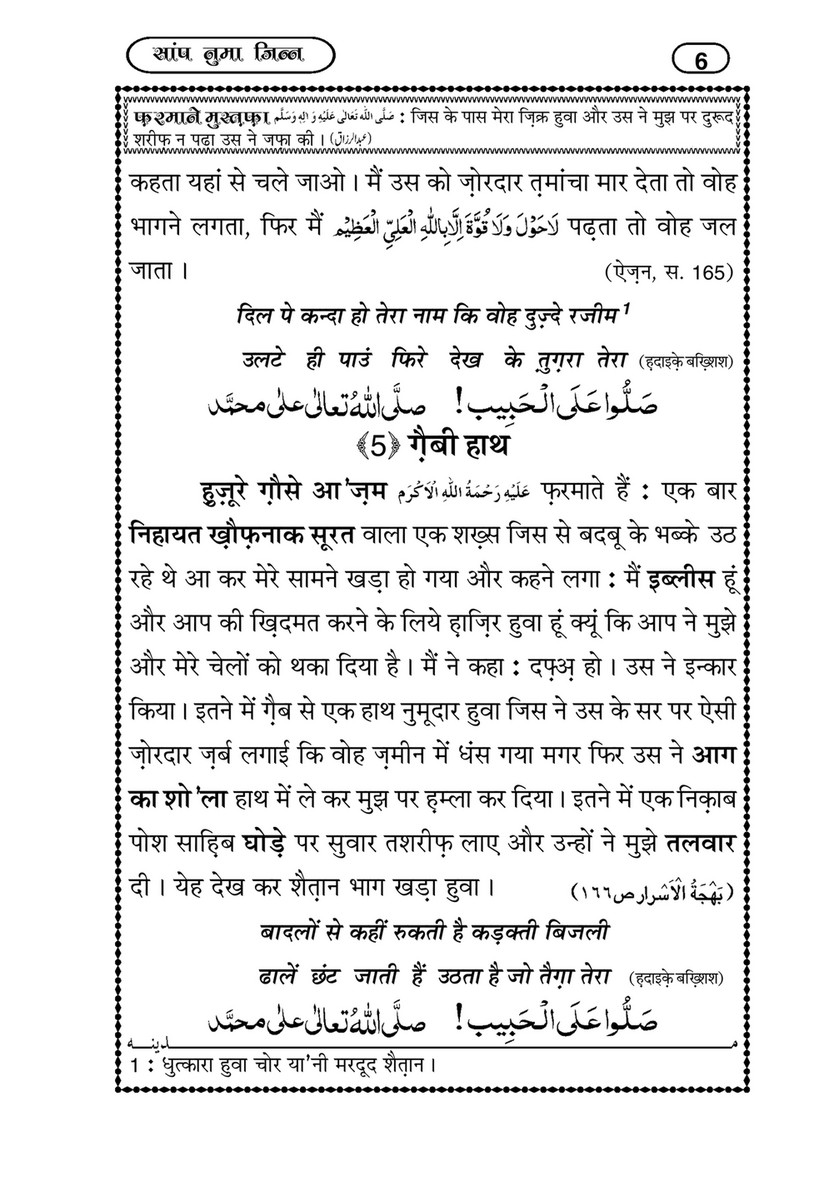 सांप नुमा जिन्न
6
फ़रमाने मुस्त़फ़ा صَلَّى اللہُ تَعَالٰى عَلَيْهِ وَاٰلِهٖ وَسَلَّم : जिस के पास मेरा ज़िक्र हुवा और उस ने मुझ पर दुरूद
शरीफ न पढा उस ने जफ़ा की । (عبدالرزاق)
कहता यहां से चले जाओ । मैं उस को ज़ोरदार त़मांचा मार देता तो वोह
भागने लगता, फिर मैं لَاحَوْلَ وَلَا قُوَّةَ اِلَّا بِاللهِ الْعَلِيِّ الْعَظِيْم पढ़ता तो वोह जल
जाता ।
(ऐज़न, स. 165)
दिल पे कन्दा हो तेरा नाम कि वोह दुज़्दे रजीम¹
उलटे ही पाउं फिरे देख के तु़ग़रा तेरा (ह़दाइके़ बख़्शिश)
صَلُّوا عَلَى الْحَبِيب! صَلَّى اللهُ تَعَالٰى عَلٰى مُحَمَّد
﴾5﴿ गै़बी हाथ
हुज़ूरे ग़ौसे आ'ज़म عَلَيْهِ رَحْمَةُ اللهِ الْاَكْرَم फ़रमाते हैं : एक बार
निहायत ख़ौफ़नाक सूरत वाला एक शख़्स जिस से बदबू के भब्के उठ
रहे थे आ कर मेरे सामने खड़ा हो गया और कहने लगा : मैं इब्लीस हूं
और आप की ख़िदमत करने के लिये ह़ाज़िर हुवा हूं क्यूं कि आप ने मुझे
और मेरे चेलों को थका दिया है । मैं ने कहा : दफ़्अ़ हो । उस ने इन्कार
किया । इतने में गै़ब से एक हाथ नुमूदार हुवा जिस ने उस के सर पर ऐसी
ज़ोरदार ज़र्ब लगाई कि वोह ज़मीन में धंस गया मगर फिर उस ने आग
का शो'ला हाथ में ले कर मुझ पर ह़म्ला कर दिया । इतने में एक निक़ाब
पोश साहि़ब घोड़े पर सुवार तशरीफ़ लाए और उन्हों ने मुझे तलवार
दी । येह देख कर शैत़ान भाग खड़ा हुवा ।
(بَهْجَةُ الْاَسْرار ص١٦٦)
बादलों से कहीं रुकती है कड़क्ती बिजली
ढालें छंट जाती हैं उठता है जो तैग़ा तेरा (ह़दाइके़ बख़्शिश)
صَلُّوا عَلَى الْحَبِيب! صَلَّى اللهُ تَعَالٰى عَلٰى مُحَمَّد
مـدينـه
1 : धुत्कारा हुवा चोर या'नी मरदूद शैत़ान ।